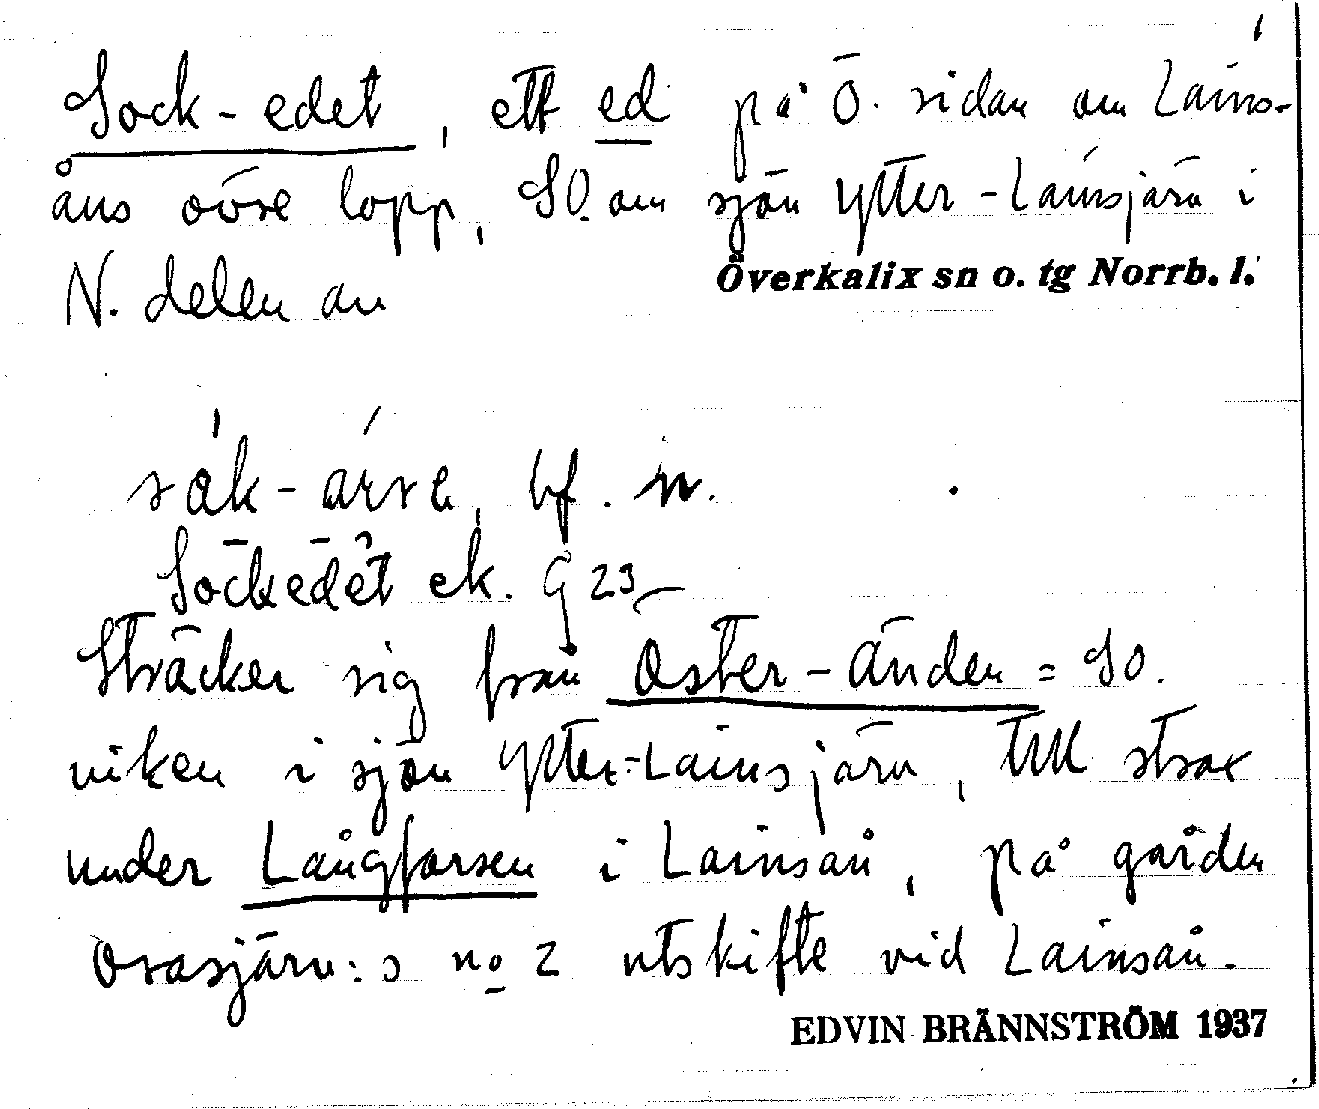 Sock-edet, ett ed på Ö. sidan om Lains-
åns övre lopp, SO. om sjön Ytter-Lainsjärv i
N. delen av
Överkalix sn o. tg Norrb. l.
bf. n.
Söckēdet ek. G 23
Sträcker sig från Öster-änden = SO.
viken i sjön Ytter-Lainsjärv, till strax
under Långforsen i Lainsån, på gården
Orasjärv:s no 2 utskifte vid Lainsån.
EDVIN BRÄNNSTRÖM 1937